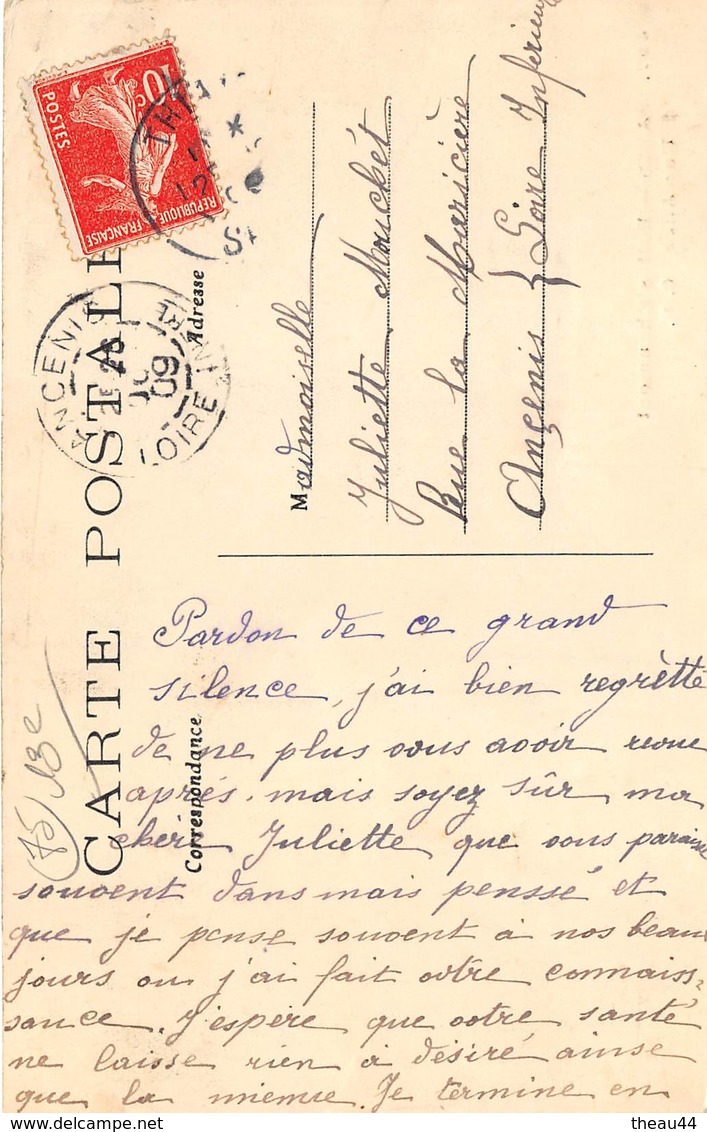 10c
POSTES
REPUBLIQUE FRANÇAISE
ANCENIS
09
LOIRE INFRE
CARTE POSTALE
Correspondance
Adresse
Madmoiselle
Juliette Mouchet
Rue la Maricière
Ançenis Loire Inferieu
Pardon de ce grand
silence, j'ai bien regrètté
de ne plus vous avoir revue
aprés. mais soyez sûr ma
cheri Juliette que vous paraise
souvent dans mais penssé et
que je pense souvent à nos beau
jours ou j'ai fait votre connaiss-
sance. J'espère que votre santé
ne laisse rien à désiré ainse
que la mienne. Je termine en
75/13e
delcampe.net
theau44